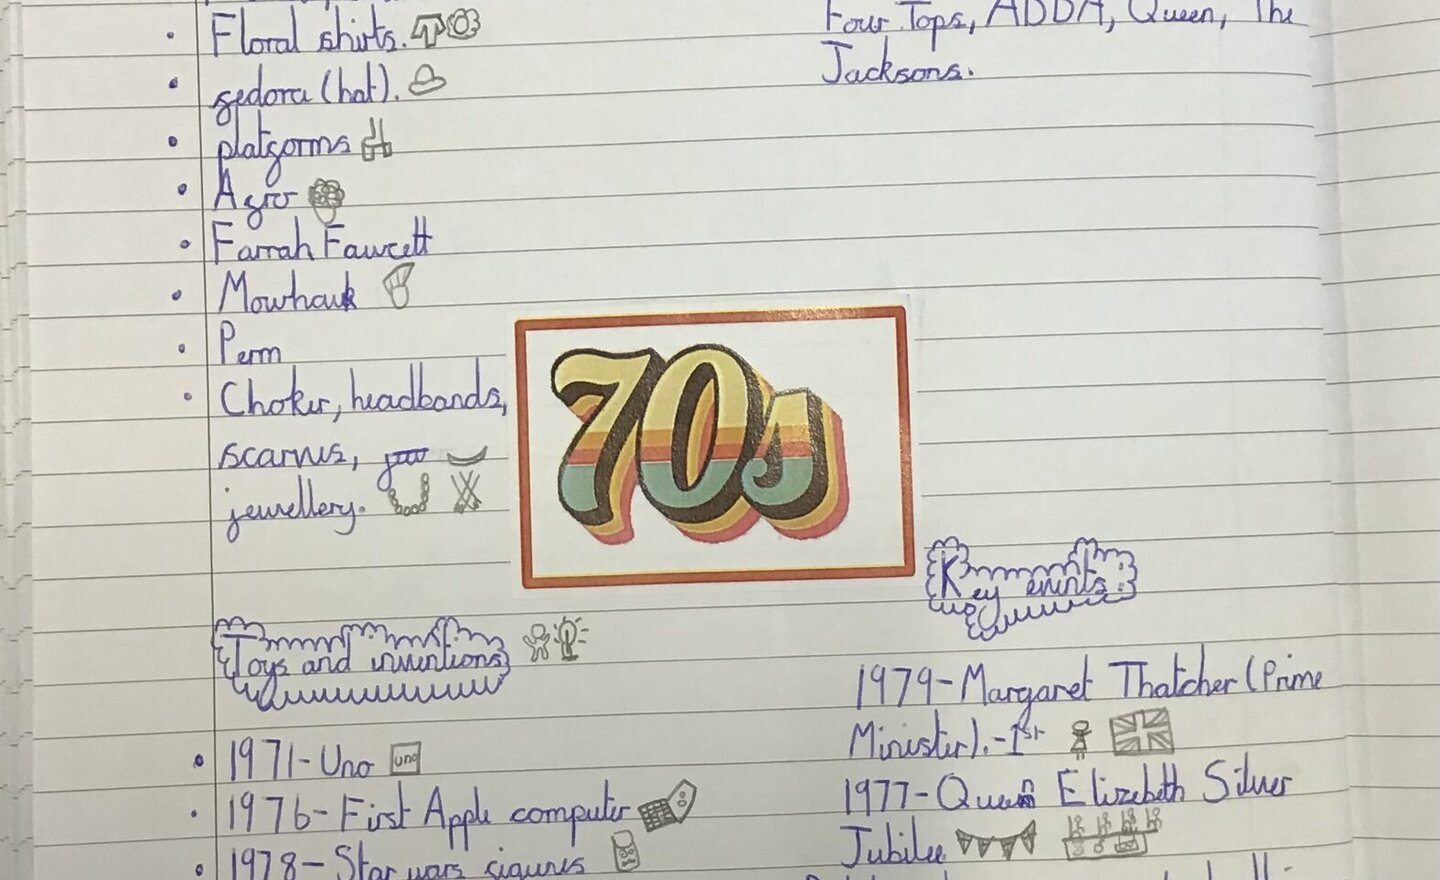 Floral shirts.
fedora (hat).
platforms
Afro
Farrah Fawcett
Mowhauk
Perm
Choker, headbands,
scarves,
jewellery.
Four Tops, ABBA, Queen, The
Jacksons.
70s
Toys and inventions
1971-Uno uno
1976-First Apple computer
1978-Star wars figures
Key events:
1979-Margaret Thatcher (Prime
Minister).-1st
1977-Queen Elizebeth Silver
Jubilee